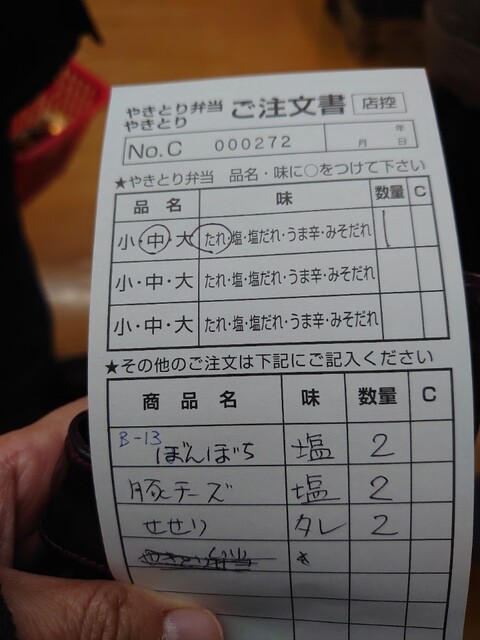 やきとり弁当
やきとり
ご注文書 店控
No.C 000272 年 月 日
★やきとり弁当 品名・味に○をつけて下さい
品名 味 数量 C
小・中・大 たれ・塩・塩だれ・うま辛・みそだれ 1
小・中・大 たれ・塩・塩だれ・うま辛・みそだれ
小・中・大 たれ・塩・塩だれ・うま辛・みそだれ
★その他のご注文は下記にご記入ください
商品名 味 数量 C
B-13
ぼんぼち 塩 2
豚チーズ 塩 2
せせり タレ 2
やきとり弁当